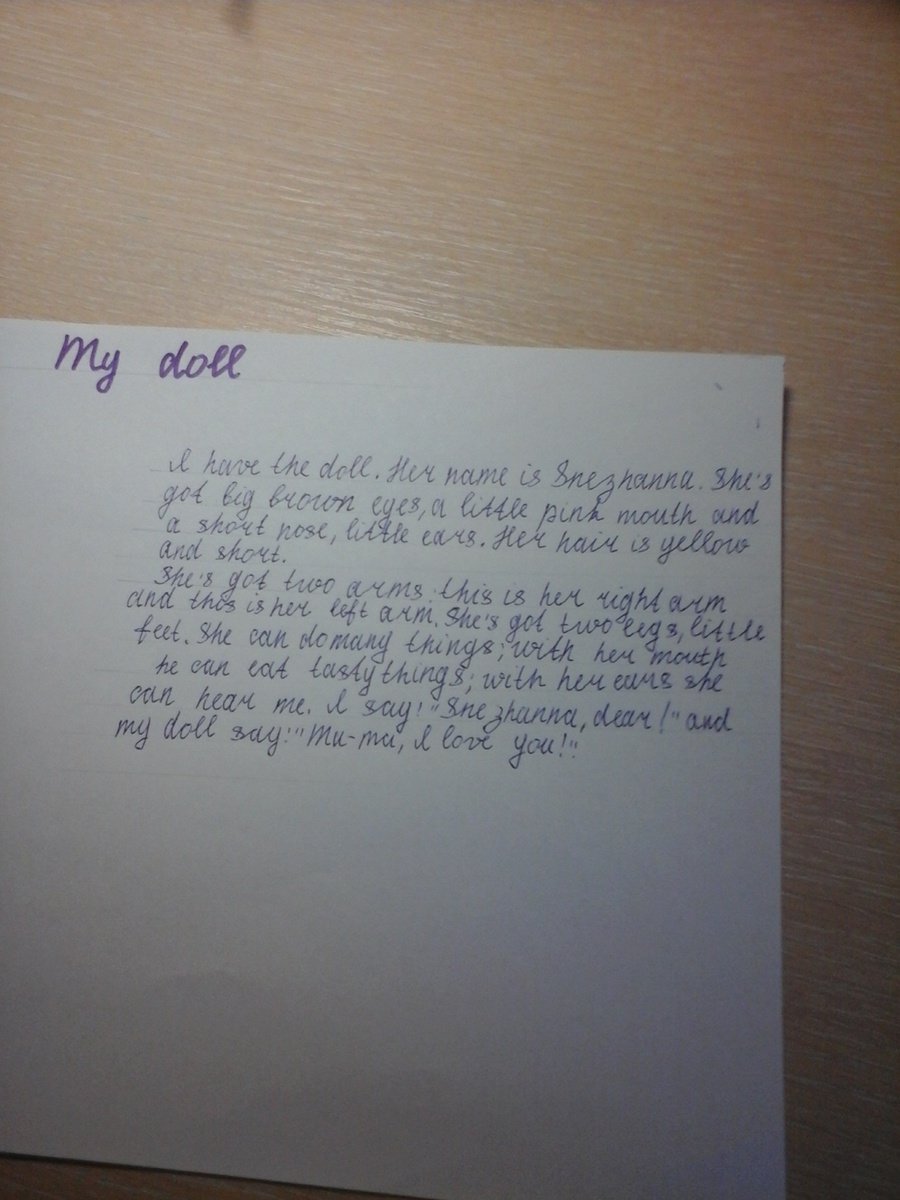 My doll
I have the doll. Her name is Snezhanna. She's
got big brown eyes, a little pink mouth and
a short nose, little ears. Her hair is yellow
and short.
She's got two arms: this is her right arm
and this is her left arm. She's got two legs, little
feet. She can do many things; with her mouth
he can eat tasty things; with her ears she
can hear me. I say: "Snezhanna, dear!" and
my doll say: "Ma-ma, I love you!"